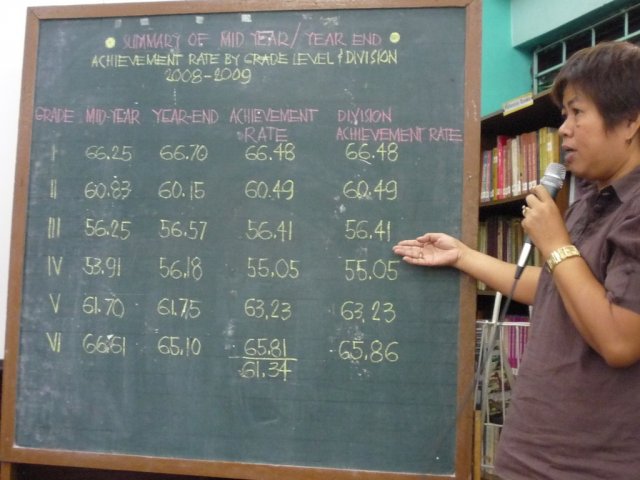 SUMMARY OF MID YEAR/YEAR END
ACHIEVEMENT RATE BY GRADE LEVEL & DIVISION
2008-2009
GRADE MID-YEAR YEAR-END ACHIEVEMENT RATE DIVISION ACHIEVEMENT RATE
I 66.25 66.70 66.48 66.48
II 60.83 60.15 60.49 60.49
III 56.25 56.57 56.41 56.41
IV 53.91 56.18 55.05 55.05
V 61.70 61.75 63.23 63.23
VI 66.51 65.10 65.81 65.86
61.34